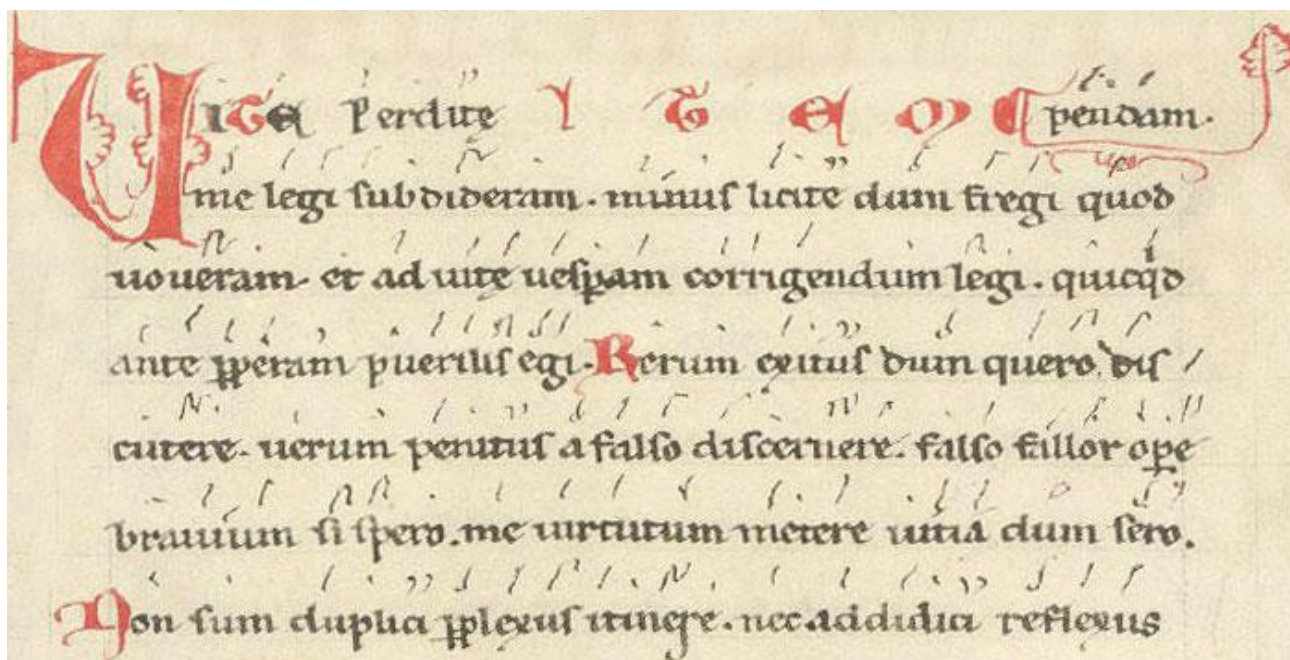 VITE perdite I T E M pendam.
me legi subdideram. minus licite dum fregi quod
uoueram. et ad uitę uesꝑam corrigendum legi. quicqd
ante ꝑperam puerilis egi. Rerum exitus dum quero dis
cutere. uerum penitus a falso discernere. falso fallor oꝑe
brauium si spero. me uirtutum metere uitia dum sero.
Non sum duplici ꝑplexus itinere. nec addidici reflexus